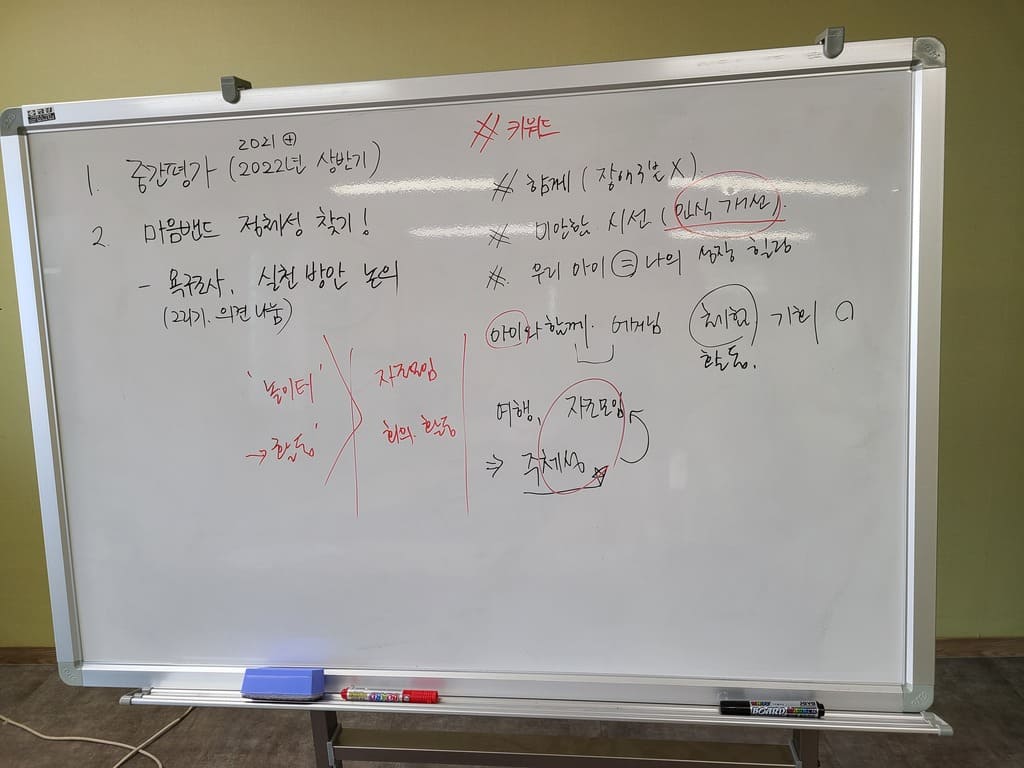 2021 ⊕
1. 중간평가 (2022년 상반기)
2. 마음밴드 정체성 찾기!
- 욕구조사, 실천방안 논의
의견나눔)
'놀이터'
→ 활동'
자조모임
회의. 활동
# 키워드
# 함께 (장애구분 X).
# 미안한 시선 (인식 개선).
# 우리 아이 = 나의 성장 힐링
아이와 함께. 체험 기회
활동.
여행, 자조모임
⇒ 주체성
BOARD